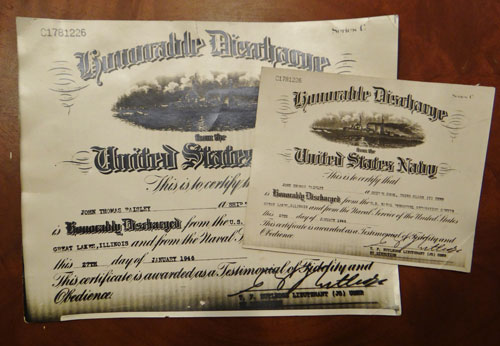 C1781226
Series C
Honorable Discharge
from the
United States
This is to certify
JOHN THOMAS
is Honorably Discharged from the U.S.
GREAT LAKES, ILLINOIS and from the Naval
this 27TH day of JANUARY 1946
This certificate is awarded as a Testimonial of Fidelity and
Obedience.
LIEUTENANT (JG) USNR
C1781226
Series C
Honorable Discharge
from the
United States Navy
This is to certify that
JOHN THOMAS
is Honorably Discharged from the U.S. NAVAL
GREAT LAKES, ILLINOIS and from the Naval Service of the United States
this 27TH day of JANUARY 1946
This certificate is awarded as a Testimonial of Fidelity and
Obedience
LIEUTENANT (JG) USNR